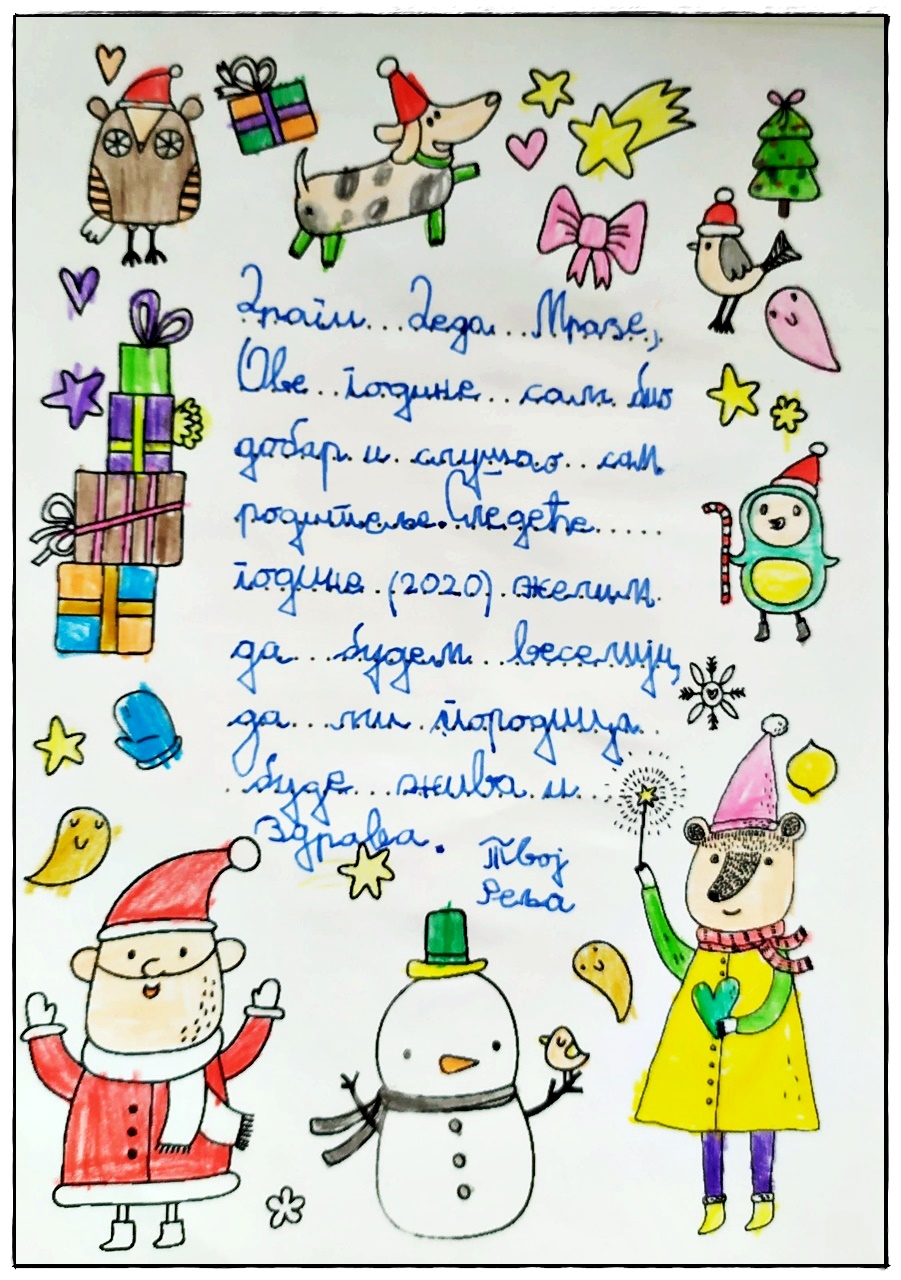 Драги Деда Мразе,
Ове године сам био
добар и слушао сам
родитеље. Следеће
године (2020) желим
да будем веселији,
да ми породица
буде жива и
здрава. Твој
Реља